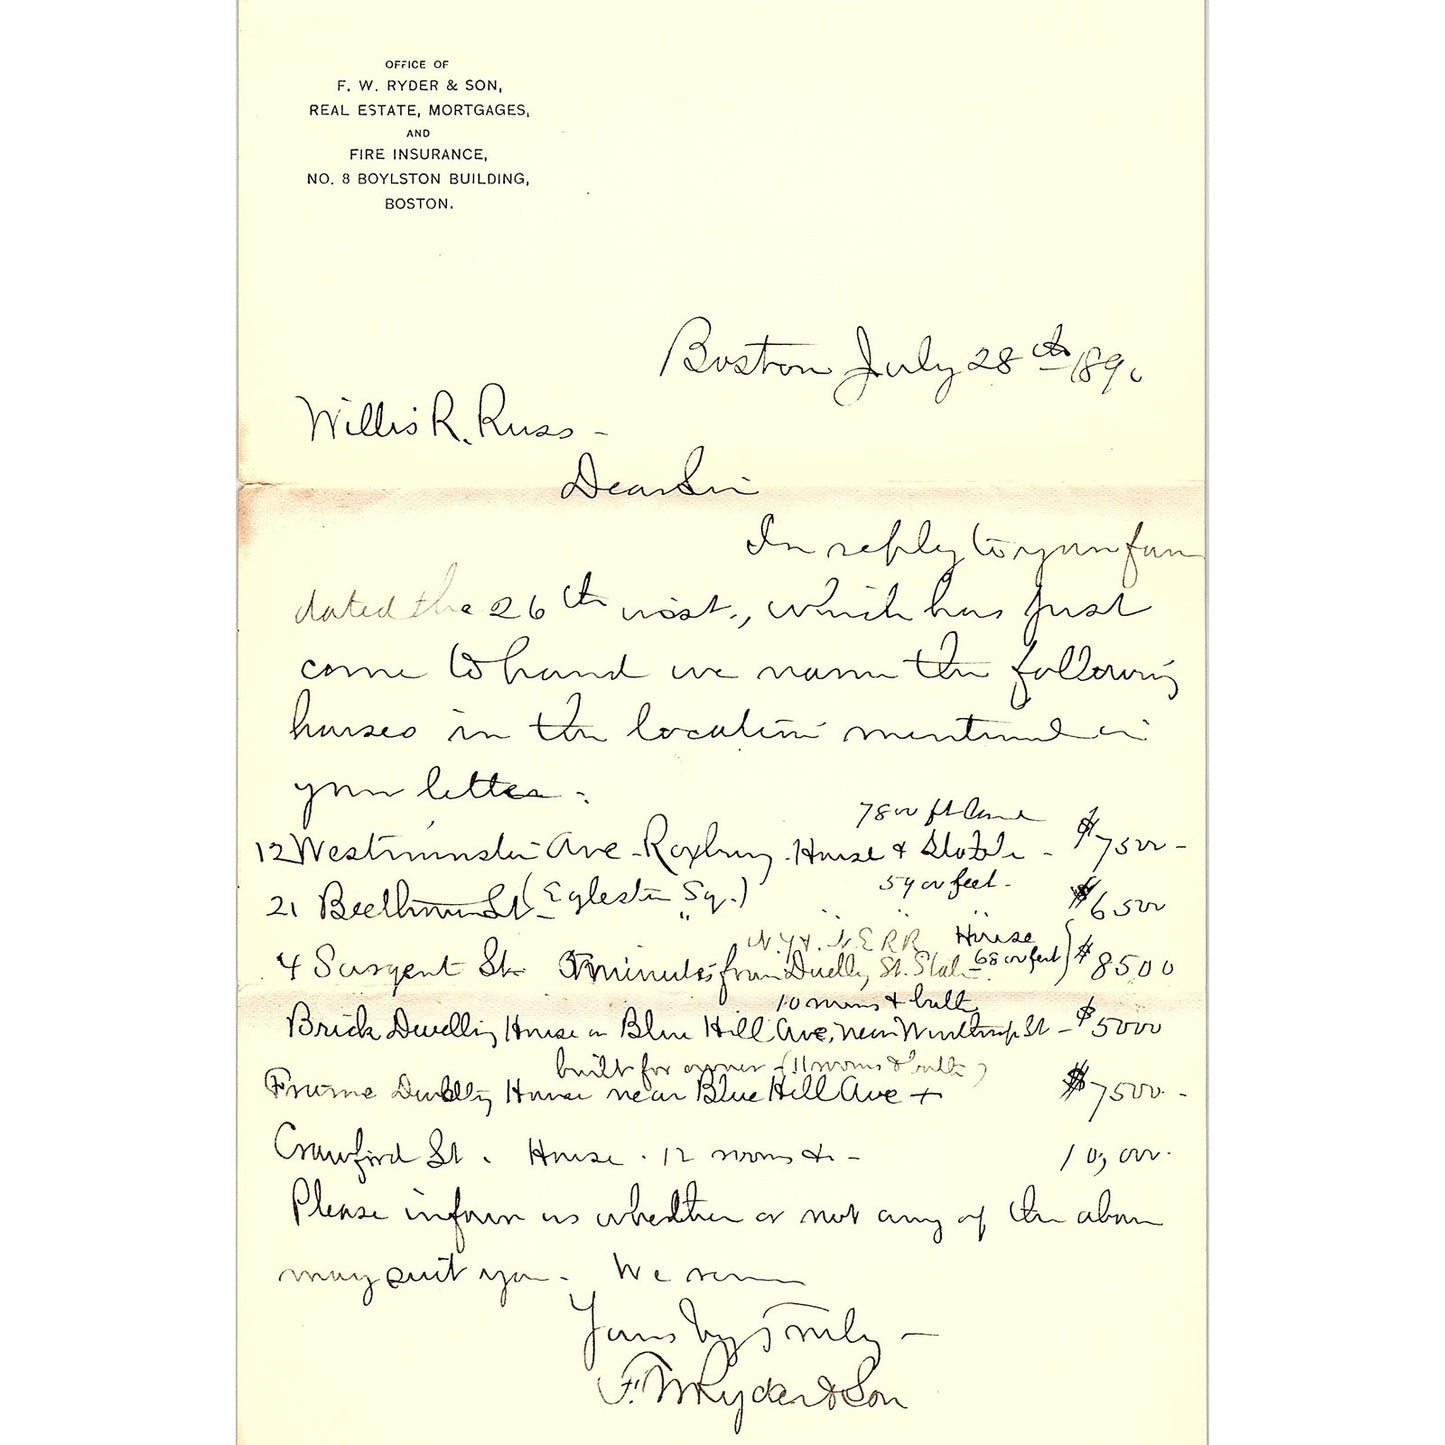 OFFICE OF
F. W. RYDER & SON,
REAL ESTATE, MORTGAGES,
AND
FIRE INSURANCE,
NO. 8 BOYLSTON BUILDING,
BOSTON.
Boston July 28th 189
Willis R. Russ -
Dear Sir
In reply to your favor
dated the 26th inst., which has just
come to hand we name the following
houses in the location mentioned in
your letter:
7800 ft land
12 Westminster Ave - Roxbury. House & Stable - $7500 -
5900 feet.
21 Beethoven St (Egleston Sq.) " " " " $6500
N.Y. & N.E RR House
4 Sargent St. minutes from Dudley St. Statn 6800 feet) $8500
10 rooms & bath
Brick Dwelling House on Blue Hill Ave, near Winthrop St - $5000
built for owner - (11 rooms & bath)
Frame Dwelling House near Blue Hill Ave + $7500 -
Crawford St. House. 12 rooms &c - 10,000.
Please inform us whether or not any of the above
may suit you. We remain
Yours Very Truly -
F. W Ryder & Son